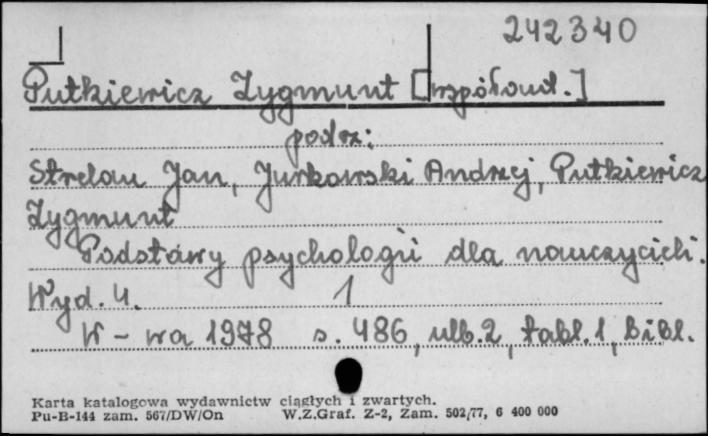 242340
Putkiewicz Zygmunt [współaut.]
podrz:
Strelau Jan, Jurkowski Andrzej, Putkiewicz
Zygmunt
Podstawy psychologii dla nauczycieli.
Wyd. 4. 1
W-wa 1978 s. 486, ulb. 2, tabl. 1, bibl.
Karta katalogowa wydawnictw ciągłych i zwartych.
Pu-B-144 zam. 567/DW/On W.Z.Graf. Z-2, Zam. 502/77, 6 400 000